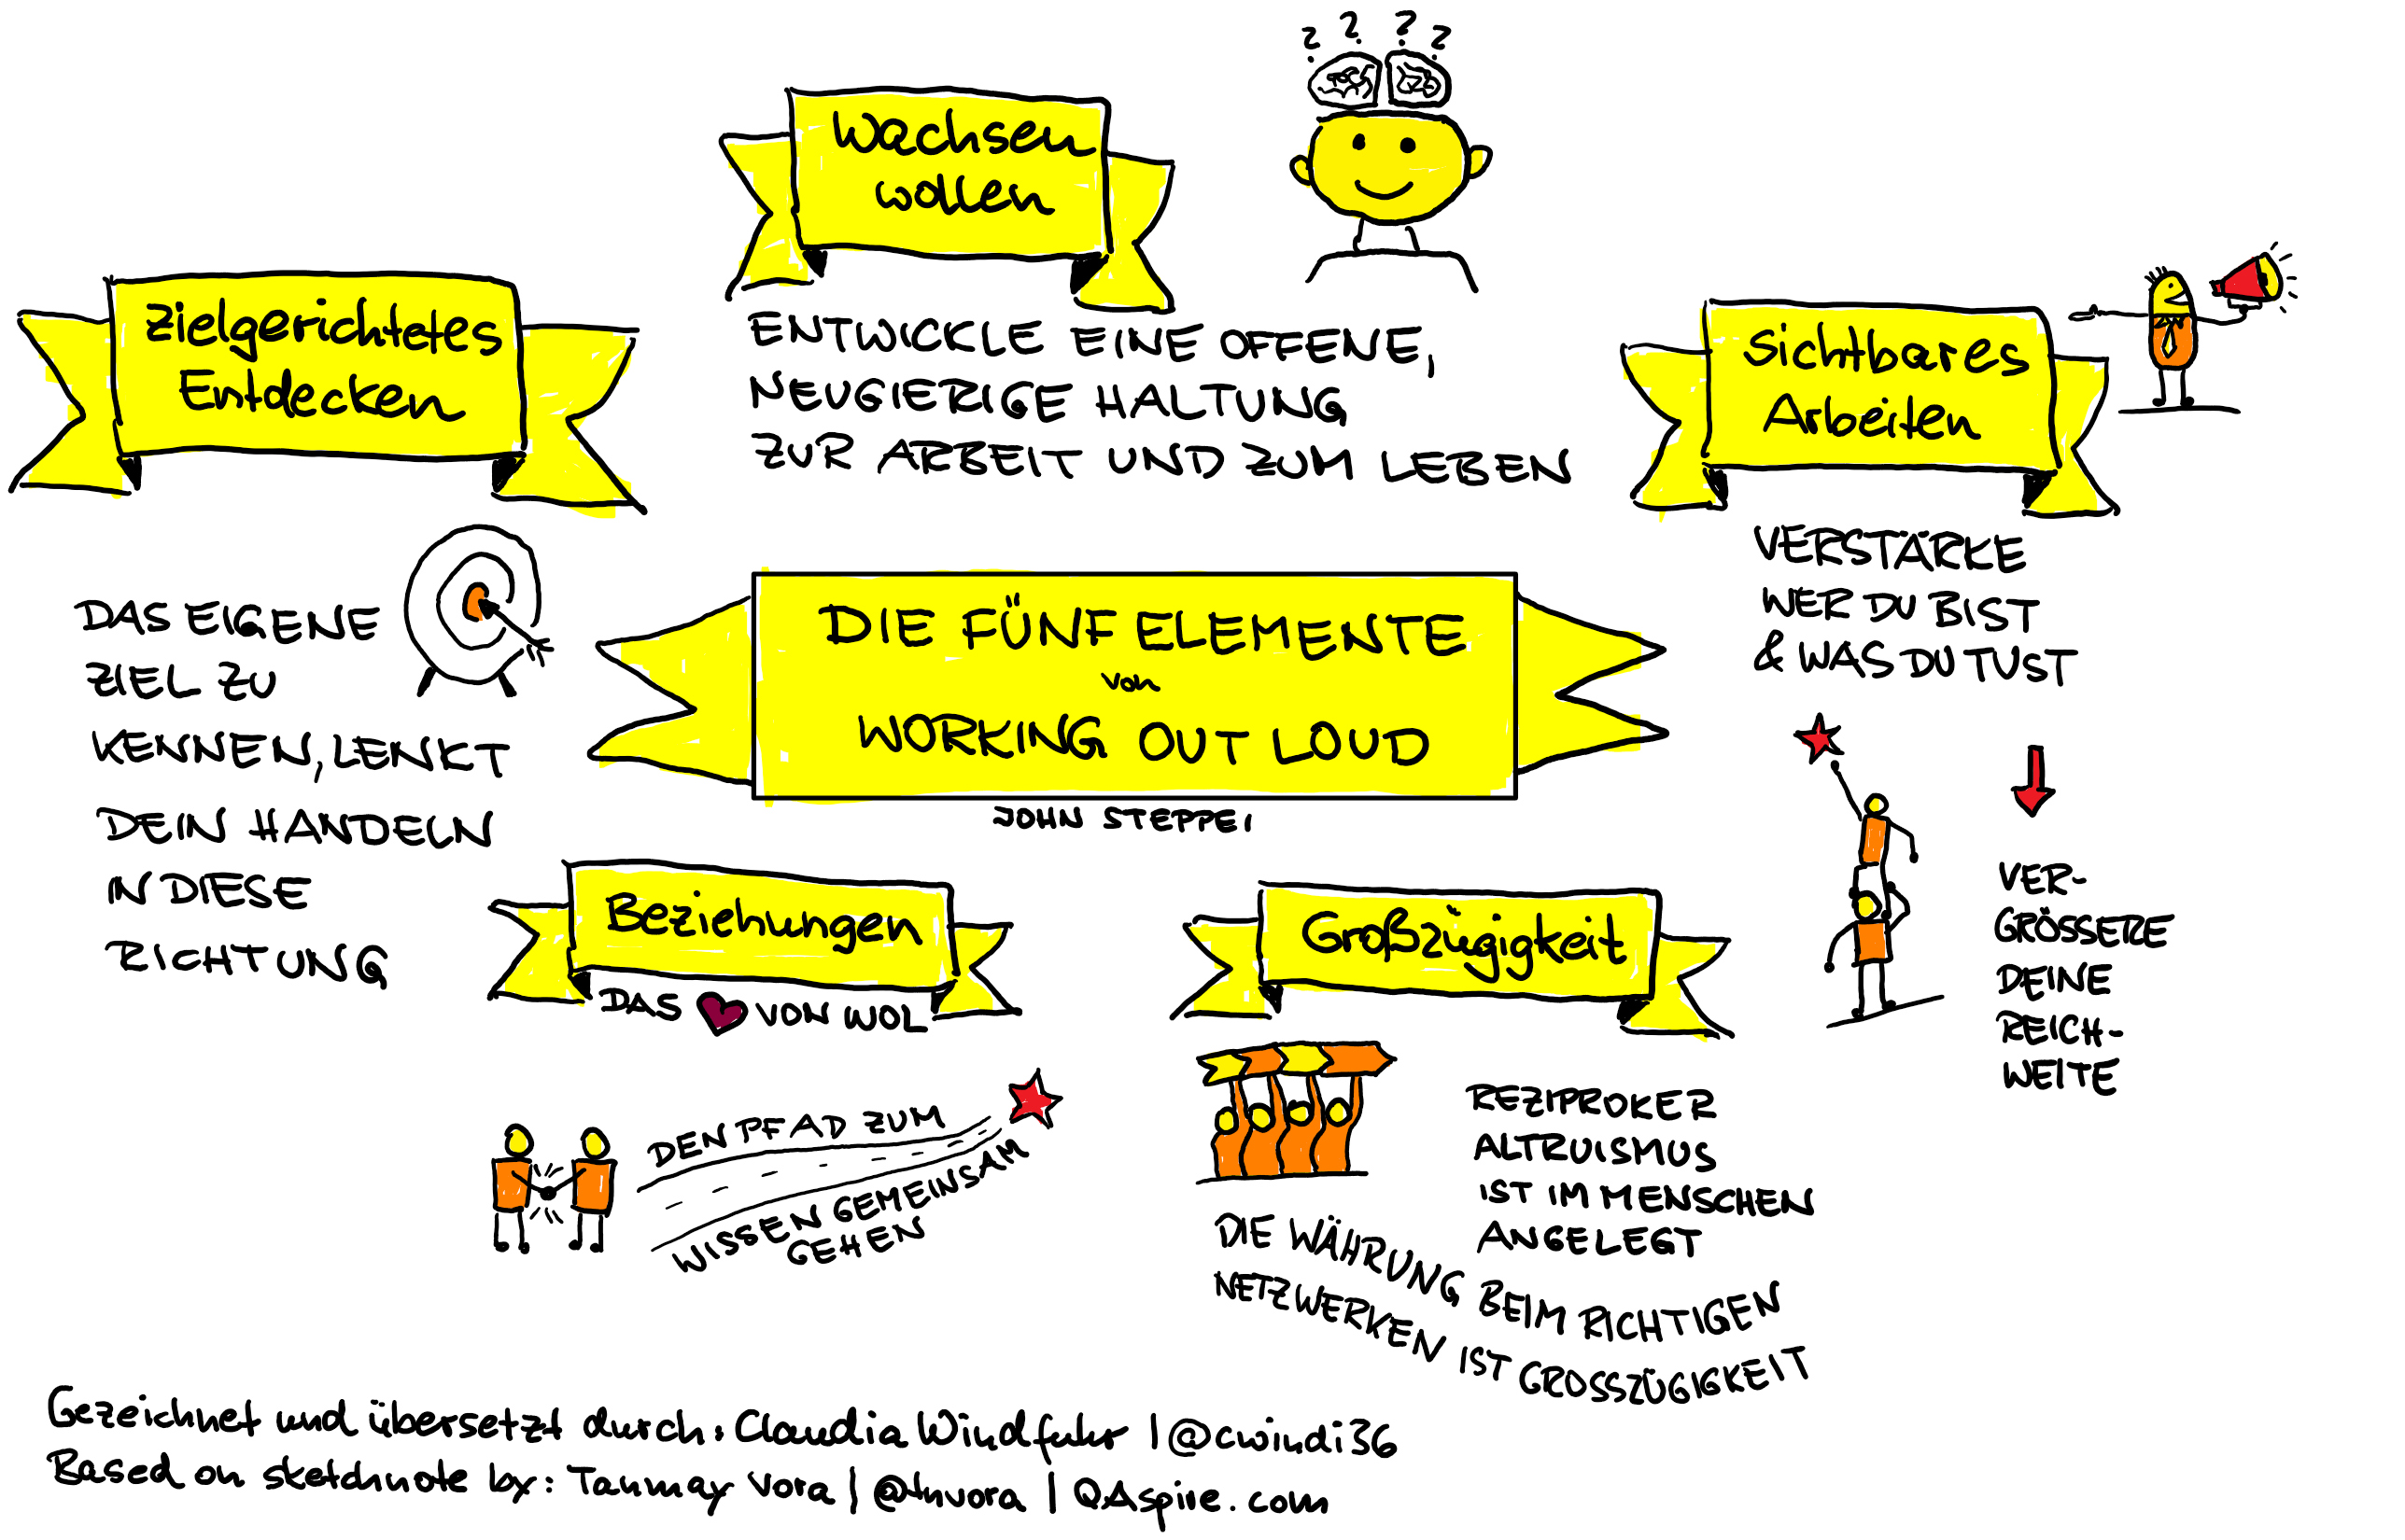 Wachsen
wollen
ENTWICKLE EINE OFFENE,
NEUGIERIGE HALTUNG
ZUR ARBEIT UND ZUM LEBEN
Zielgerichtetes
Entdecken
DAS EIGENE
ZIEL ZU
KENNEN, LENKT
DEIN HANDELN
IN DIESE
RICHTUNG
Sichtbares
Arbeiten
VERSTÄRKE
WER DU BIST
& WAS DU TUST
VER-
GRÖSSERE
DEINE
REICH-
WEITE
DIE FÜNF ELEMENTE
von
WORKING OUT LOUD
JOHN STEPPEI
Beziehungen
DAS ♥ VON WOL
DEN PFAD ZUM
WISSEN GEMEINSAM
GEHEN
Großzügigkeit
REZIPROKER
ALTRUISMUS
IST IM MENSCHEN
ANGELEGT
DIE WÄHRUNG BEIM RICHTIGEN
NETZWERKEN IST GROSSZÜGIGKEIT
Gezeichnet und übersetzt durch: Claudia Windfuhr | @cwindi36
Based on sketchnote by: Tanmay Vora | @tnvora | QAspire.com
? ? ? ?